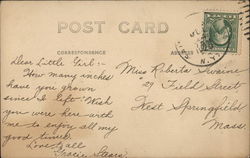 POST CARD
CORRESPONDENCE
ADDRESS
N.Y.
Dear Little Girl:-
How many inches
have you grown
since I left. Wish
you were here with
me to enjoy all my
good times.
Love to all
Miss Roberta Swaine
29 Field Street
West Springfield
Mass.